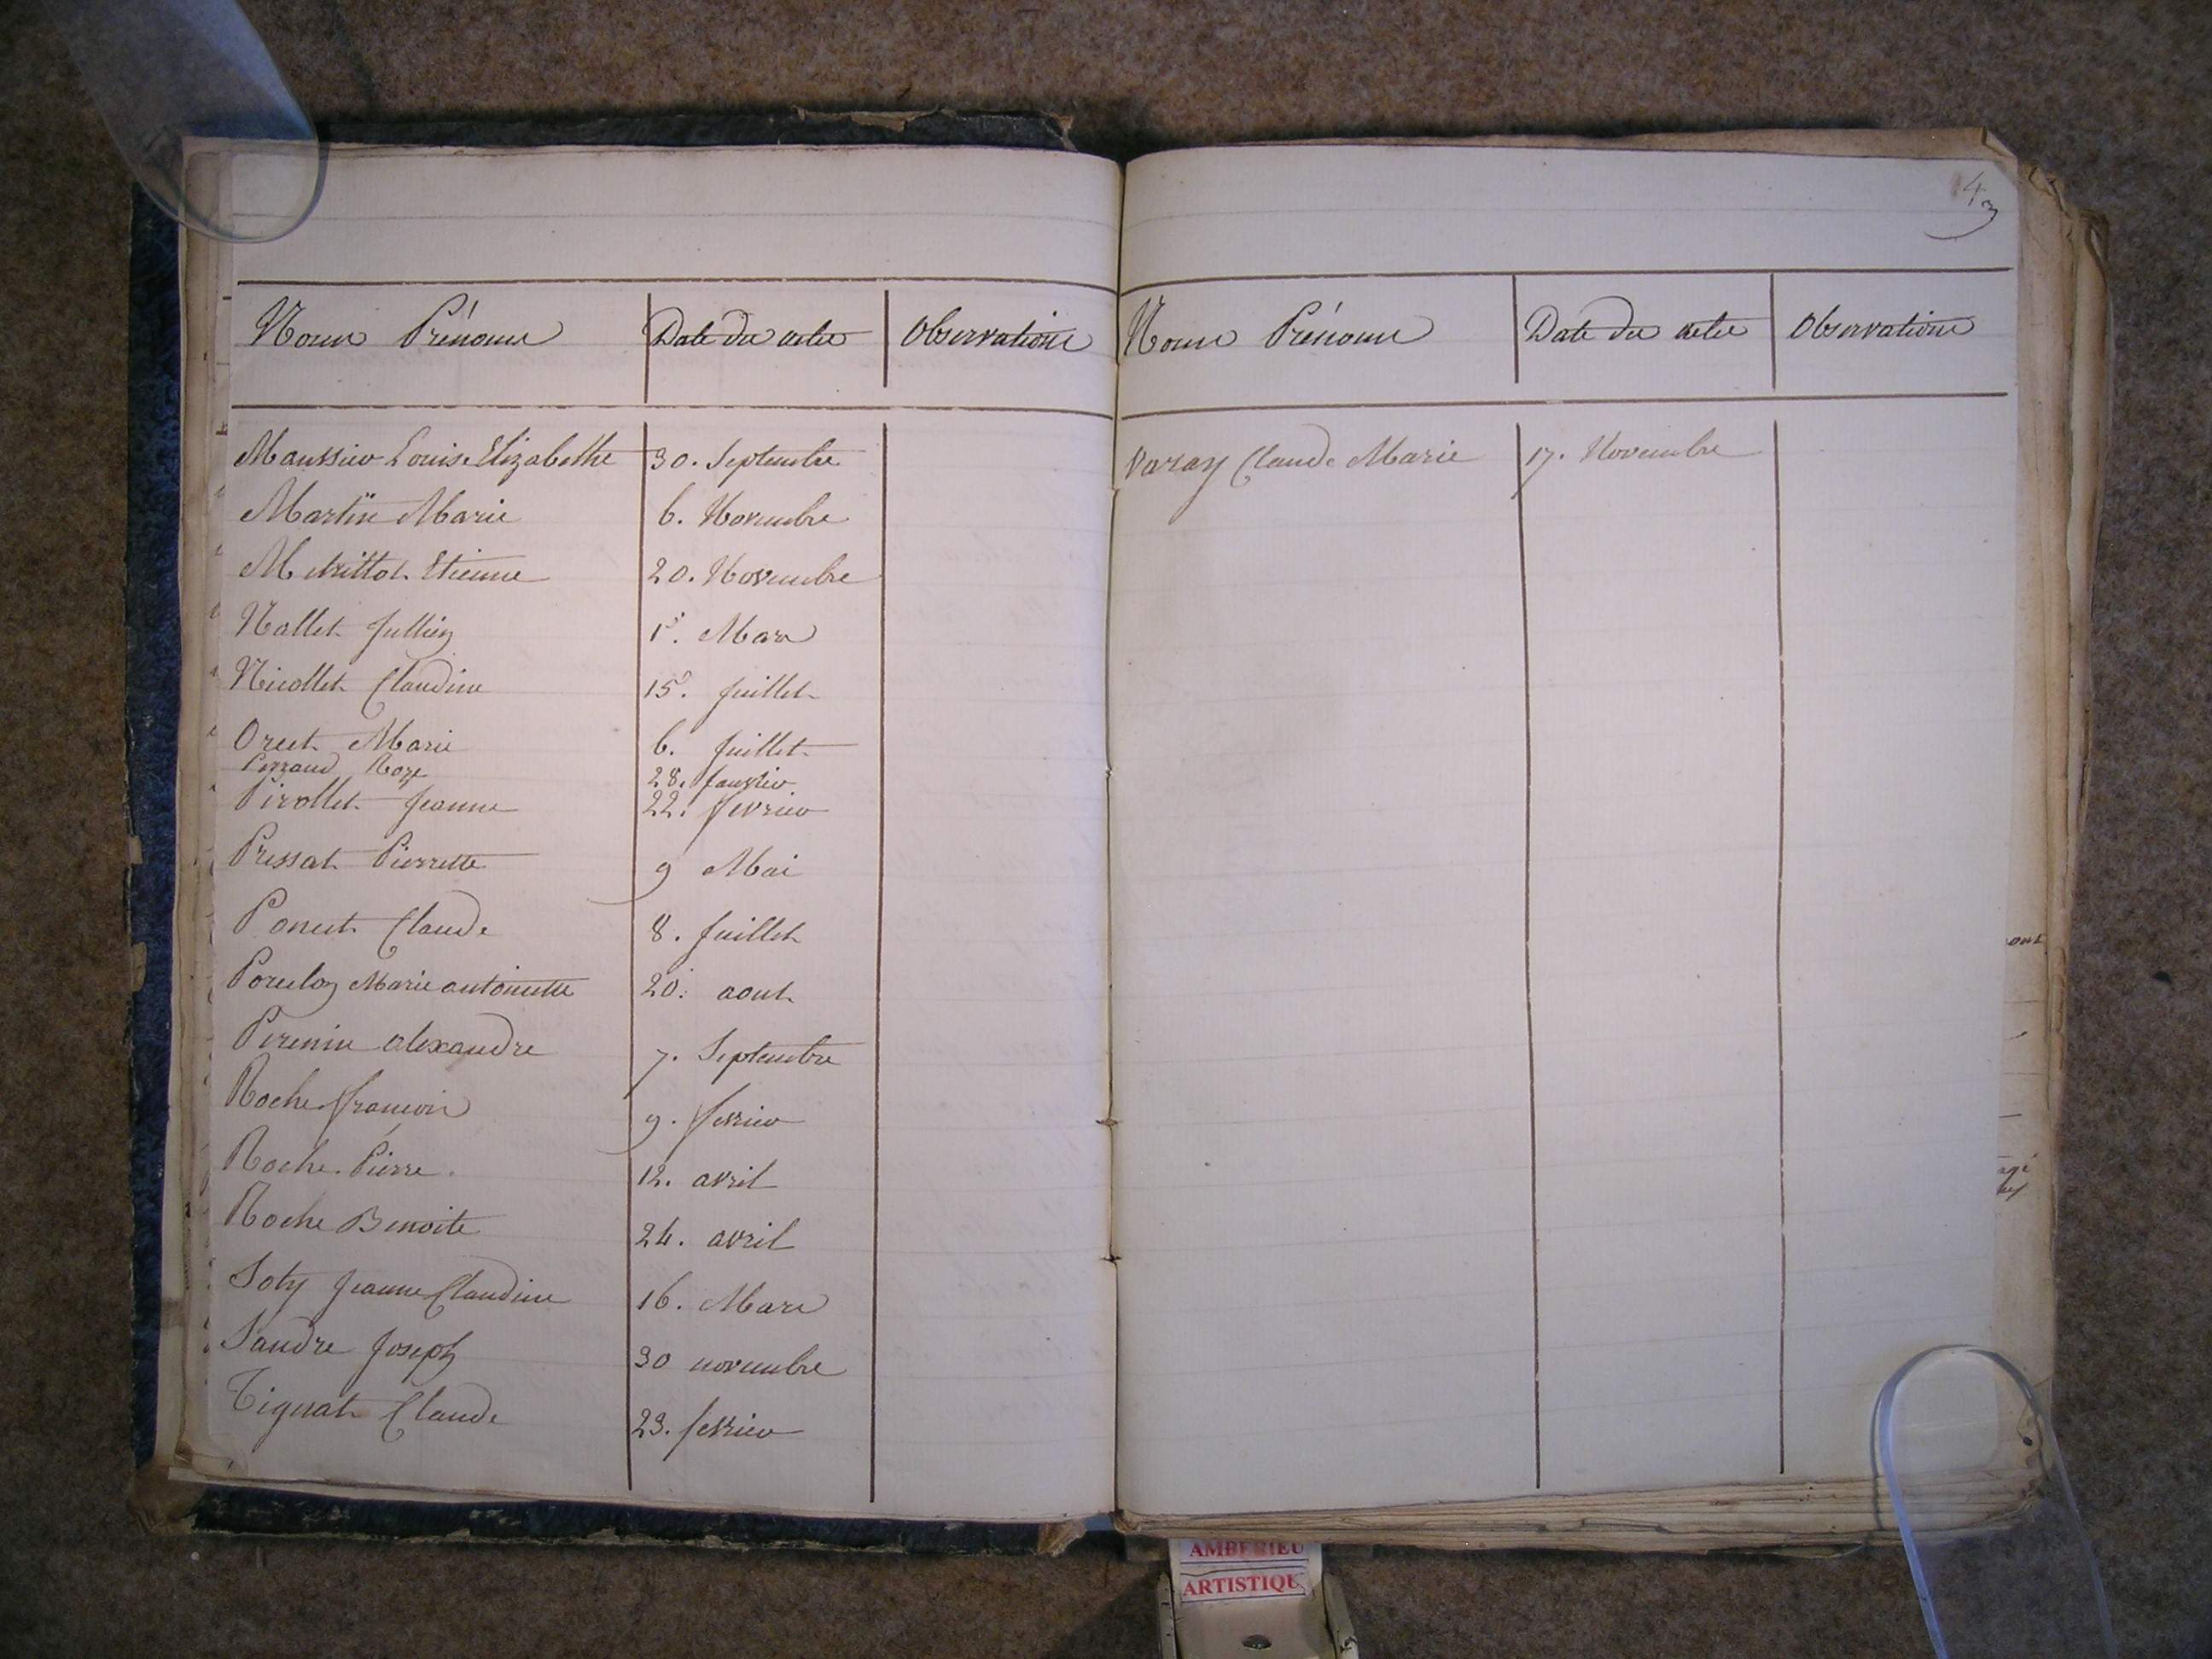 Noms Prénoms Date des actes Observations
Maussier Louise Elizabethe 30. Septembre
Martin Marie 6. Novembre
Metrillot Etienne 20. Novembre
Nallet Jullien 1er. Mars
Nicollet Claudine 15. juillet
Orcet Marie 6. juillet
Perraud Roze 28. janvier.
Pirollet Jeanne 22. fevrier
Pressat Pierrette 9 Mai
Poncet Claude 8. juillet
Marie antoinette 20. aout
Perenin alexandre 7. Septembre
Roche françois 9. fevrier
Roche Pierre. 12. avril
Roche Benoite 24. avril
Soty Jeanne Claudine 16. Mars
Sandre Joseph 30 novembre
Tignat Claude 23. fevrier
4
Noms Prénoms Date des actes Observations
Varay Claude Marie 17. Novembre
AMBERIEU
ARTISTIQU